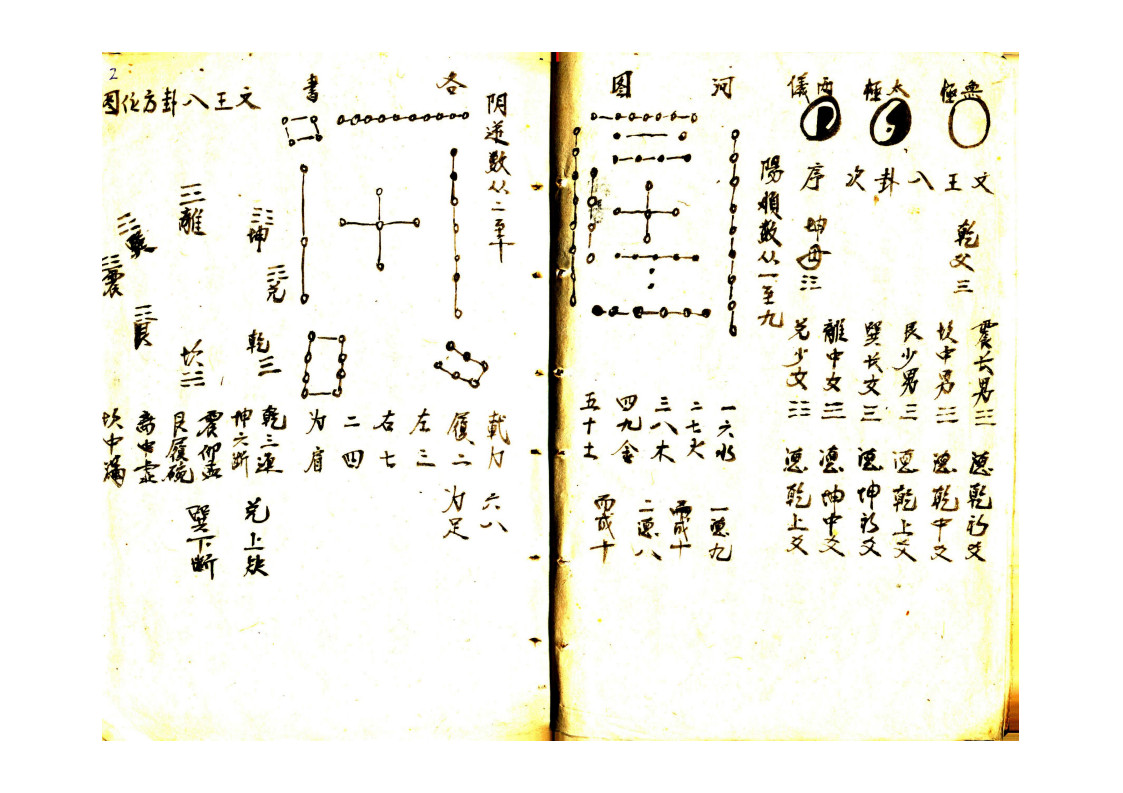 無極
太極
兩儀
文王八卦次序
乾父☰
坤母☷
震长男☳
坎中男☵
艮少男☶
巽长女☴
離中女☲
兑少女☱
乾初爻
乾中爻
乾上爻
坤初爻
坤中爻
乾上爻
陽順数从一至九
河图
一六水
二七火
三八木
四九金
五十土
一 九
而成十
二 八
而成十
阴逆数从二至十
各書
戴九
履一
左三
右七
二四
为肩
六八
为足
文王八卦方位图
☲離
☷坤
☴巽
☳震
☱兑
☶艮
乾☰
坎☵
乾三連
坤六断
震仰盂
艮履碗
离中虚
坎中满
兑上缺
巽下断
2